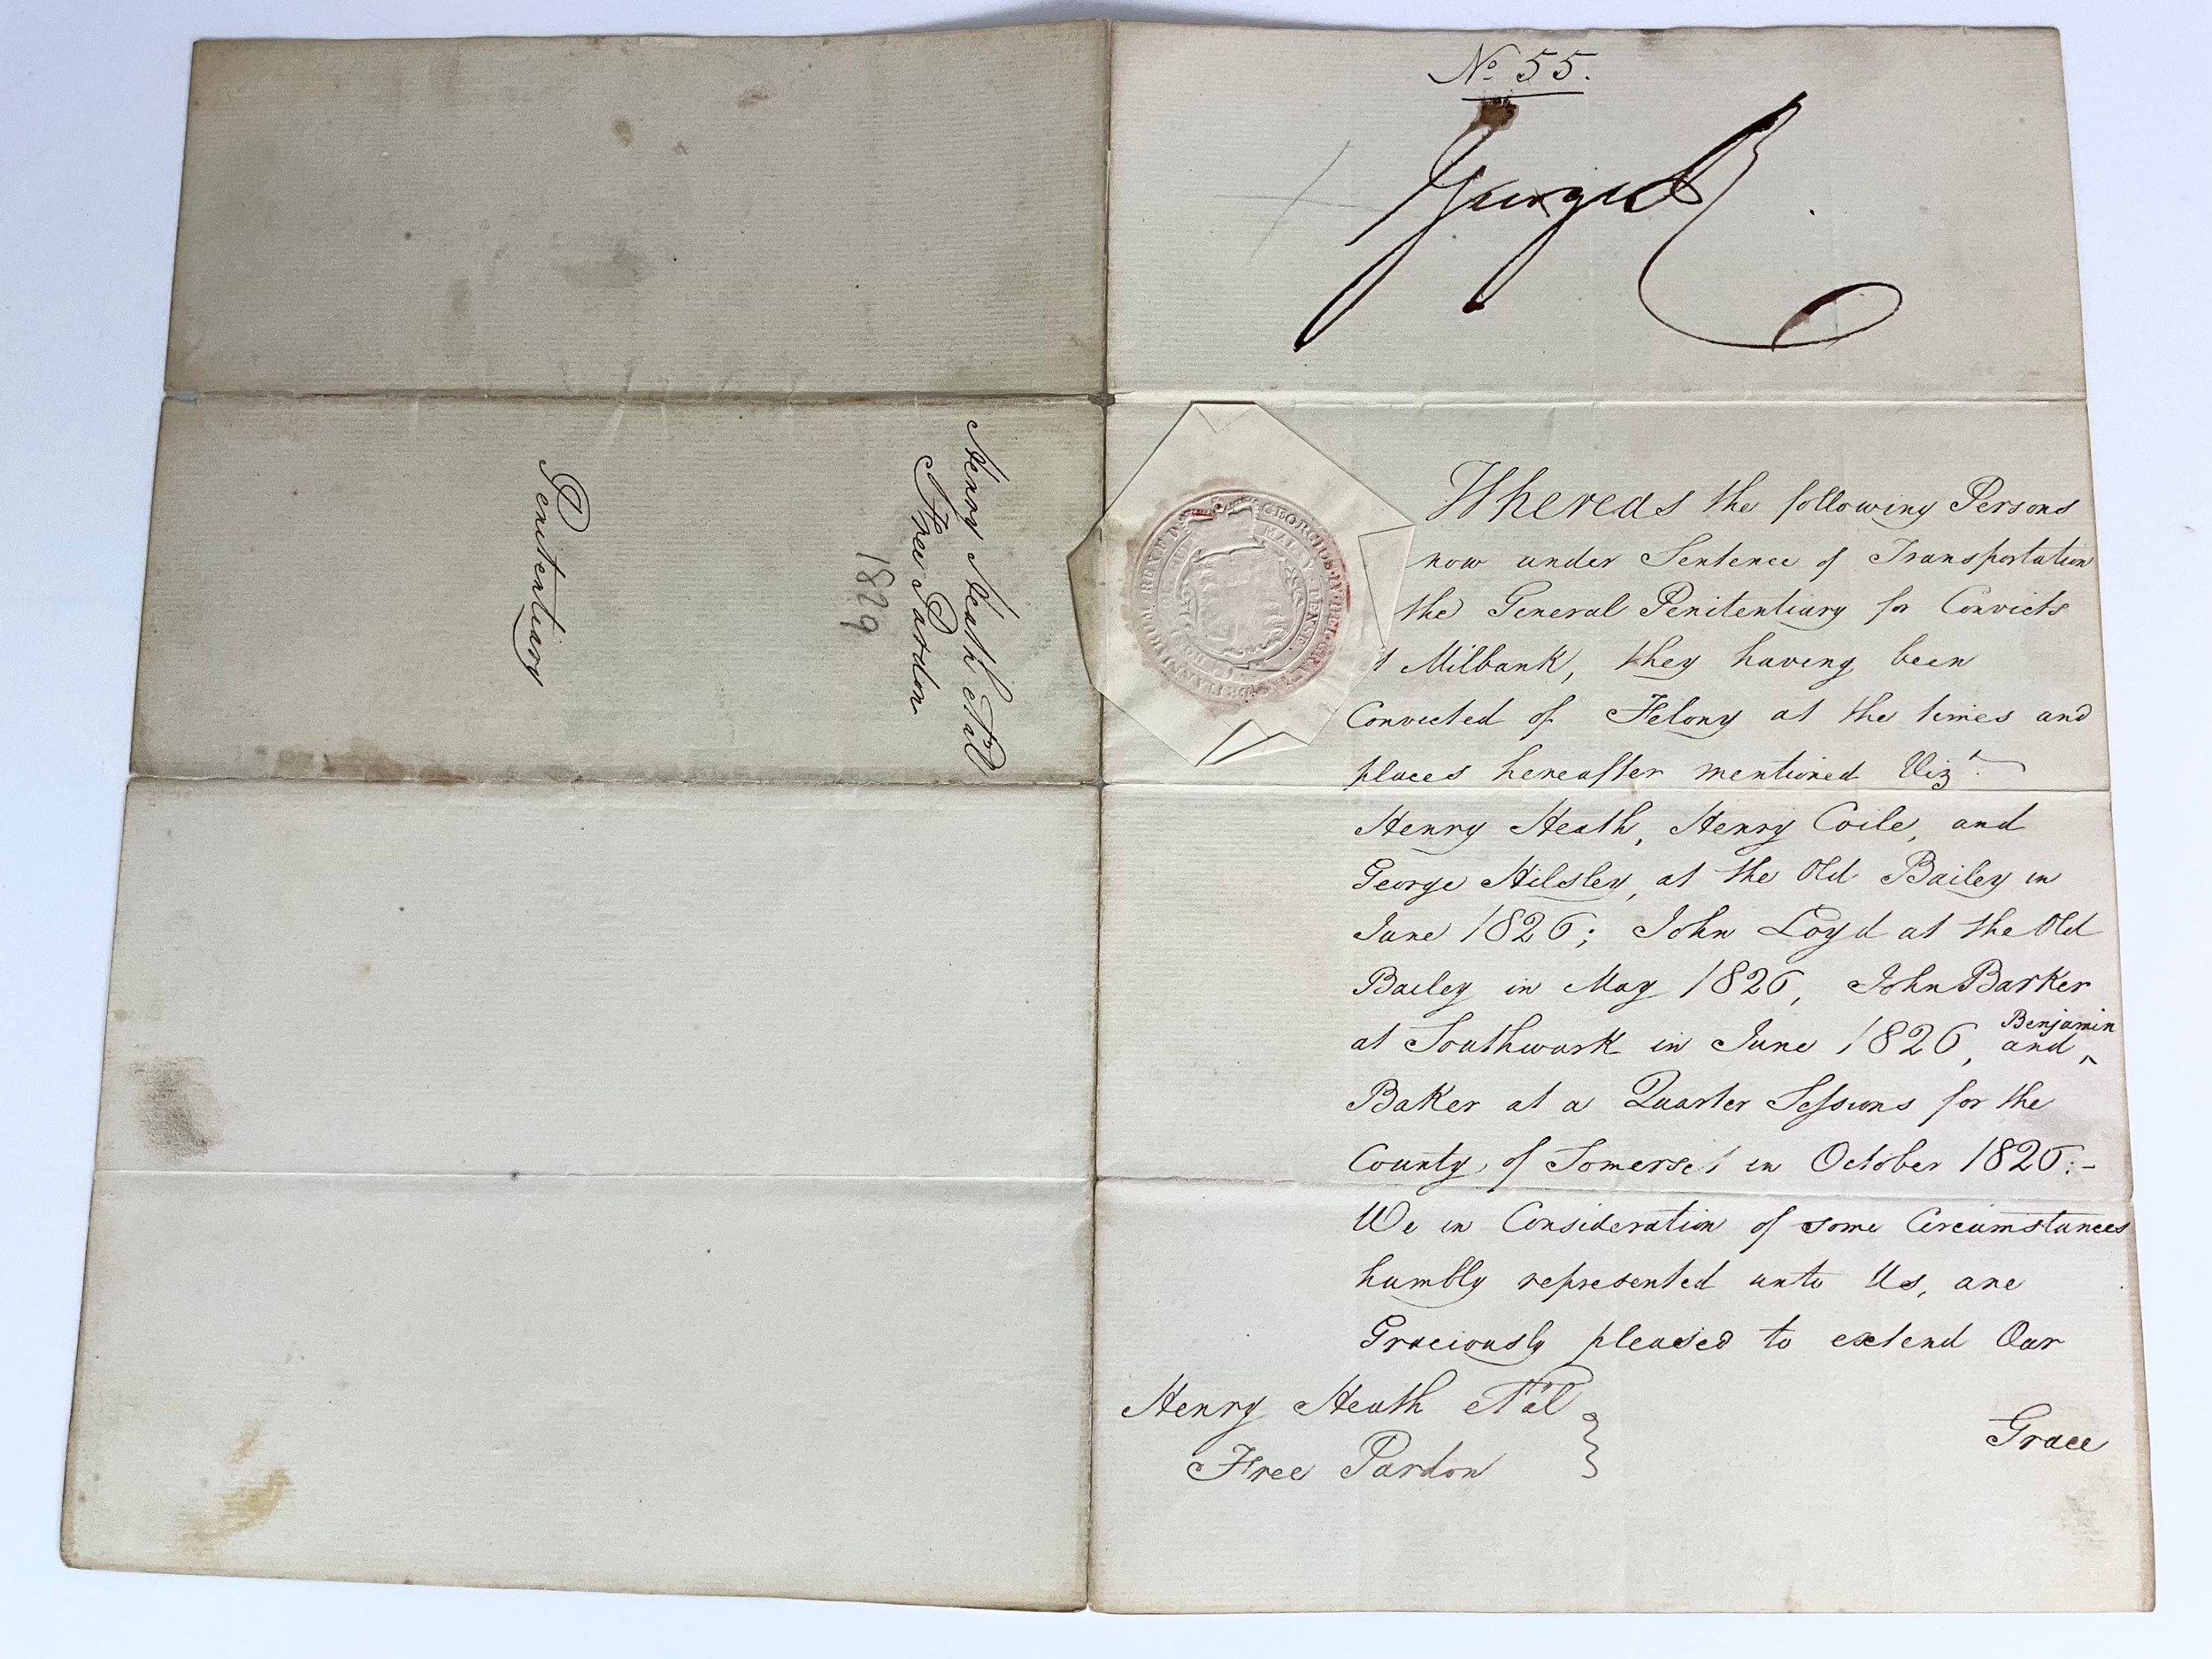 Nº 55.
George R
Whereas the following Persons
now under Sentence of Transportation
the General Penitentiary for Convicts
t Milbank, they having been
Convicted of Felony at the times and
places hereafter mentioned Vizt.
Henry Heath, Henry Coile, and
George Hilsley, at the Old Bailey in
June 1826; John Loyd at the Old
Bailey in May 1826, John Barker
at Southwark in June 1826, and ^ Benjamin
Baker at a Quarter Sessions for the
County of Somerset in October 1826:-
We in Consideration of some Circumstances
humbly represented unto Us, are
Graciously pleased to extend Our
Grace
Henry Heath et al
Free Pardon
Henry Heath et al
Free Pardon
1829
Penitentiary